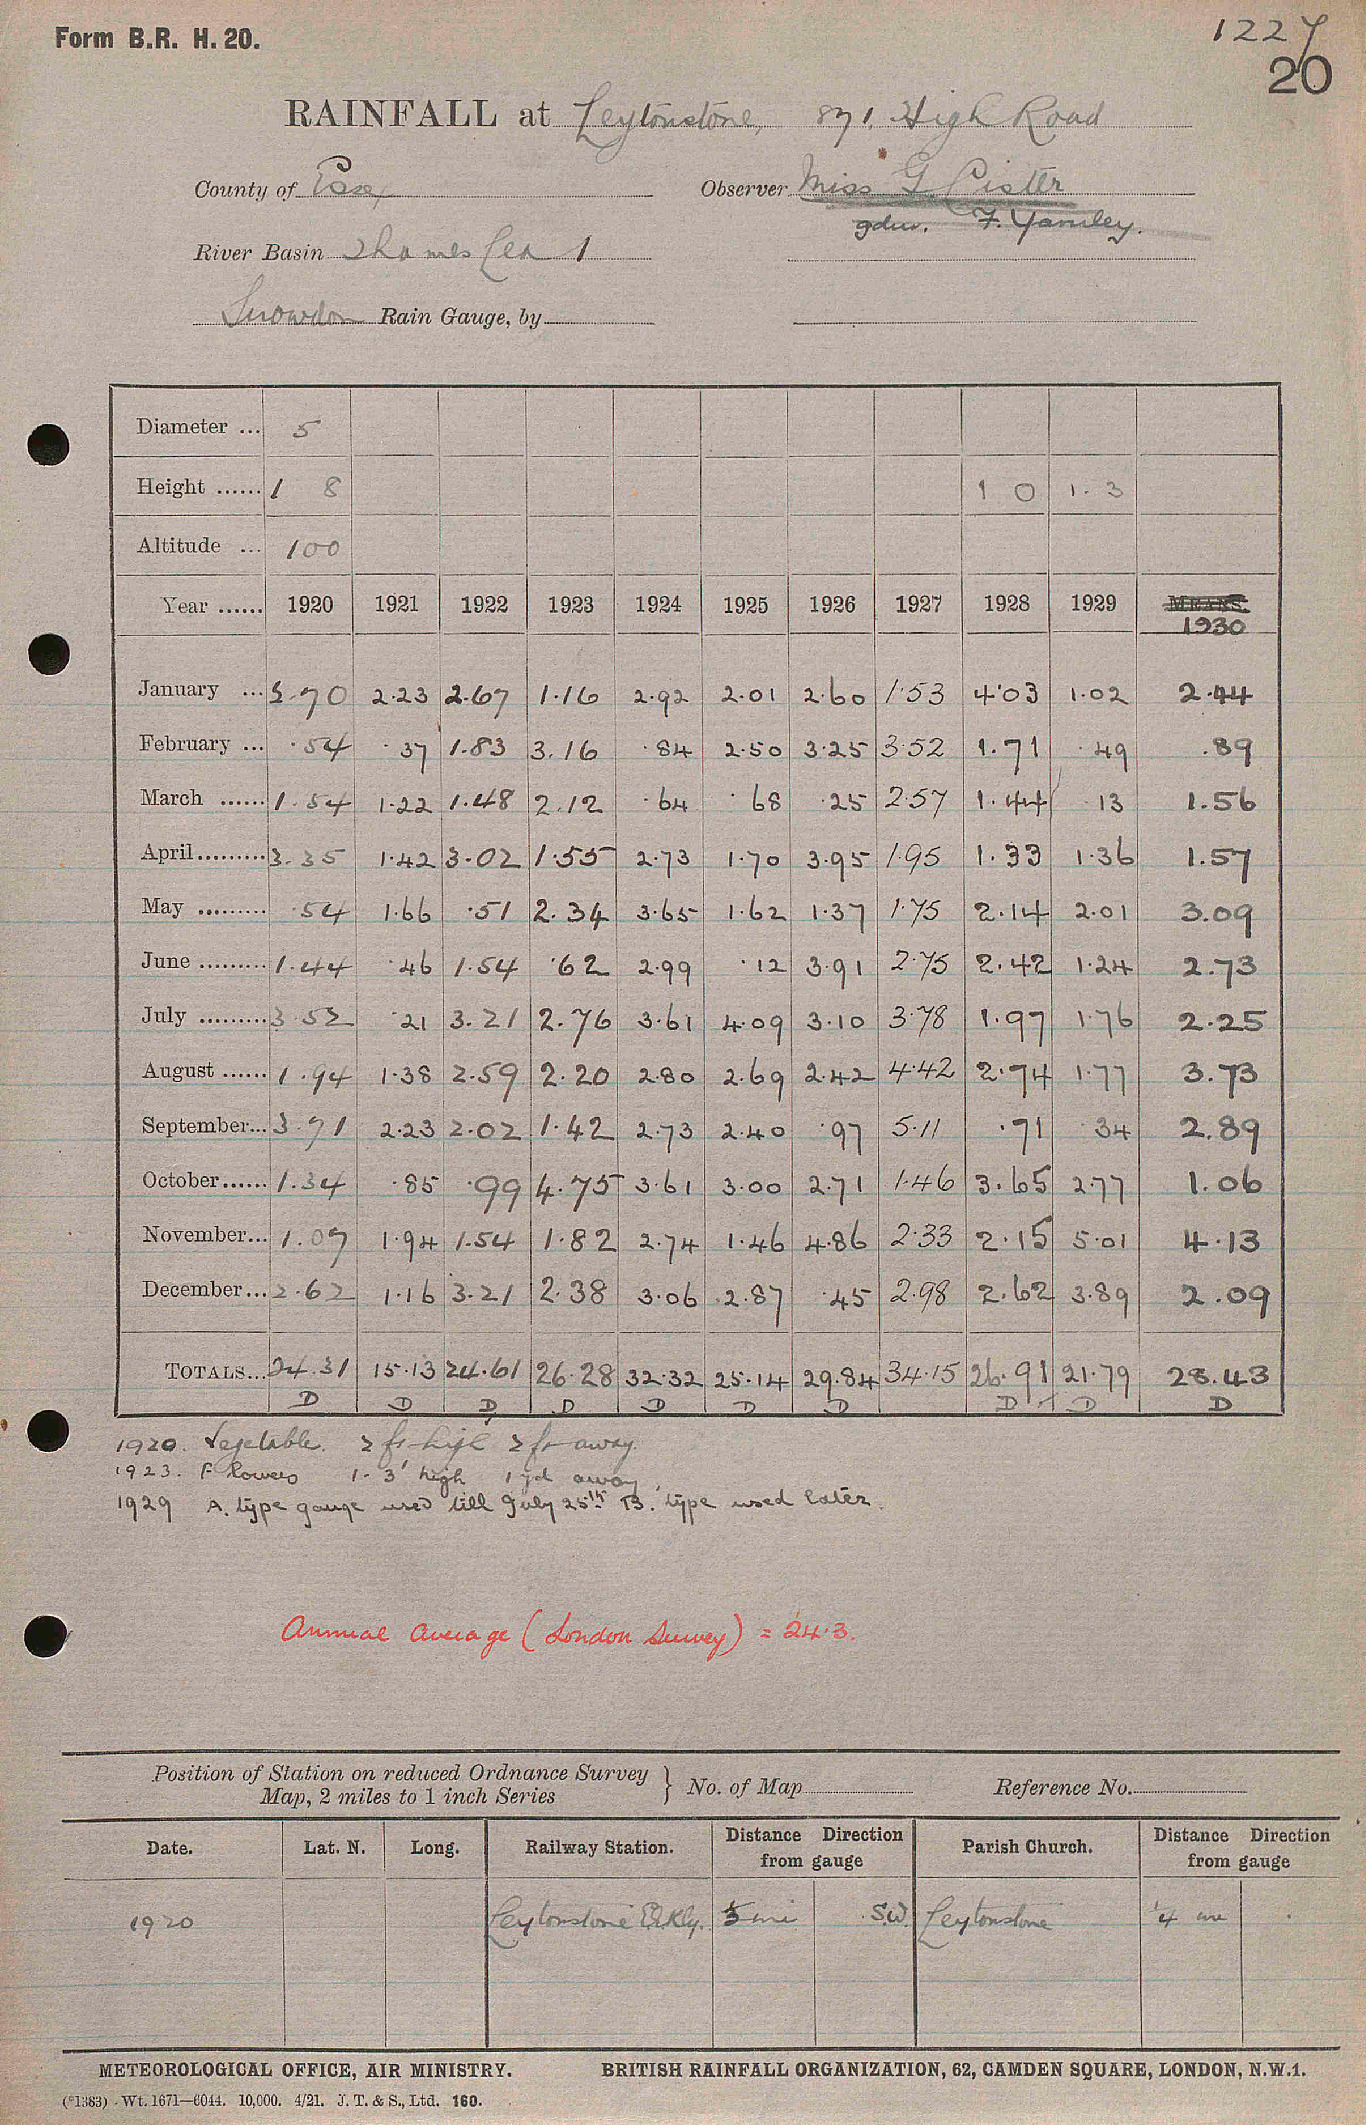 Form B.R. H. 20.
1227
20
RAINFALL at Leytonstone, 871. High Road
County of Essex Observer Miss G Lister
gdnr. F. Yarnley.
River Basin Thames Lea 1
Snowdon Rain Gauge, by
Diameter ... 5
Height ...... 1 8 1 0 1. 3
Altitude ... 100
Year ...... 1920 1921 1922 1923 1924 1925 1926 1927 1928 1929 MEANS.
1930
January ... 2.70 2.23 2.67 1.16 2.92 2.01 2.60 1.53 4.03 1.02 2.44
February ... .54 .37 1.83 3.16 .84 2.50 3.25 3.52 1.71 .49 .89
March ...... 1.54 1.22 1.48 2.12 .64 .68 .25 2.57 1.44 .13 1.56
April......... 3.35 1.42 3.02 1.55 2.73 1.70 3.95 1.95 1.33 1.36 1.57
May ......... .54 1.66 .51 2.34 3.65 1.62 1.37 1.75 2.14 2.01 3.09
June ......... 1.44 .46 1.54 .62 2.99 .12 3.91 2.75 2.42 1.24 2.73
July ......... 3.52 .21 3.21 2.76 3.61 4.09 3.10 3.78 1.97 1.76 2.25
August ...... 1.94 1.38 2.59 2.20 2.80 2.69 2.42 4.42 2.74 1.77 3.73
September... 3.71 2.23 2.02 1.42 2.73 2.40 .97 5.11 .71 .34 2.89
October...... 1.34 .85 .99 4.75 3.61 3.00 2.71 1.46 3.65 2.77 1.06
November... 1.07 1.94 1.54 1.82 2.74 1.46 4.86 2.33 2.15 5.01 4.13
December... 2.62 1.16 3.21 2.38 3.06 2.87 .45 2.98 2.62 3.89 2.09
TOTALS... 24.31 15.13 24.61 26.28 32.32 25.14 29.84 34.15 26.91 21.79 28.43
D D D D D D D D D D
1920. Vegetable. 2 ft high 2 ft away.
1923. Flowers 1-3' high 1 yd away
1929 A. type gauge used till July 25th. B. type used later.
Annual average (London Survey) = 24.3.
Position of Station on reduced Ordnance Survey
Map, 2 miles to 1 inch Series } No. of Map Reference No.
Date. Lat. N. Long. Railway Station. Distance Direction from gauge Parish Church. Distance Direction from gauge
1920 Leytonstone mi S.W. Leytonstone 1/4 mi
METEOROLOGICAL OFFICE, AIR MINISTRY. BRITISH RAINFALL ORGANIZATION, 62, CAMDEN SQUARE, LONDON, N.W.1.
(*1383) . Wt. 1671—6044. 10,000. 4/21. J. T. & S., Ltd. 160.